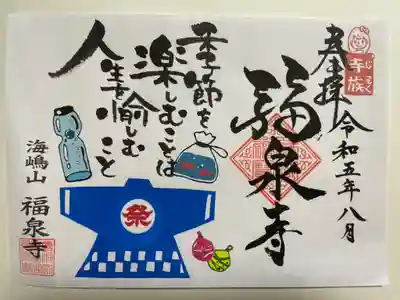 奉拝
令和五年八月
寺族
福泉寺
季節を
楽しむことは
人生を愉しむ
こと
祭
海嶋山 福泉寺